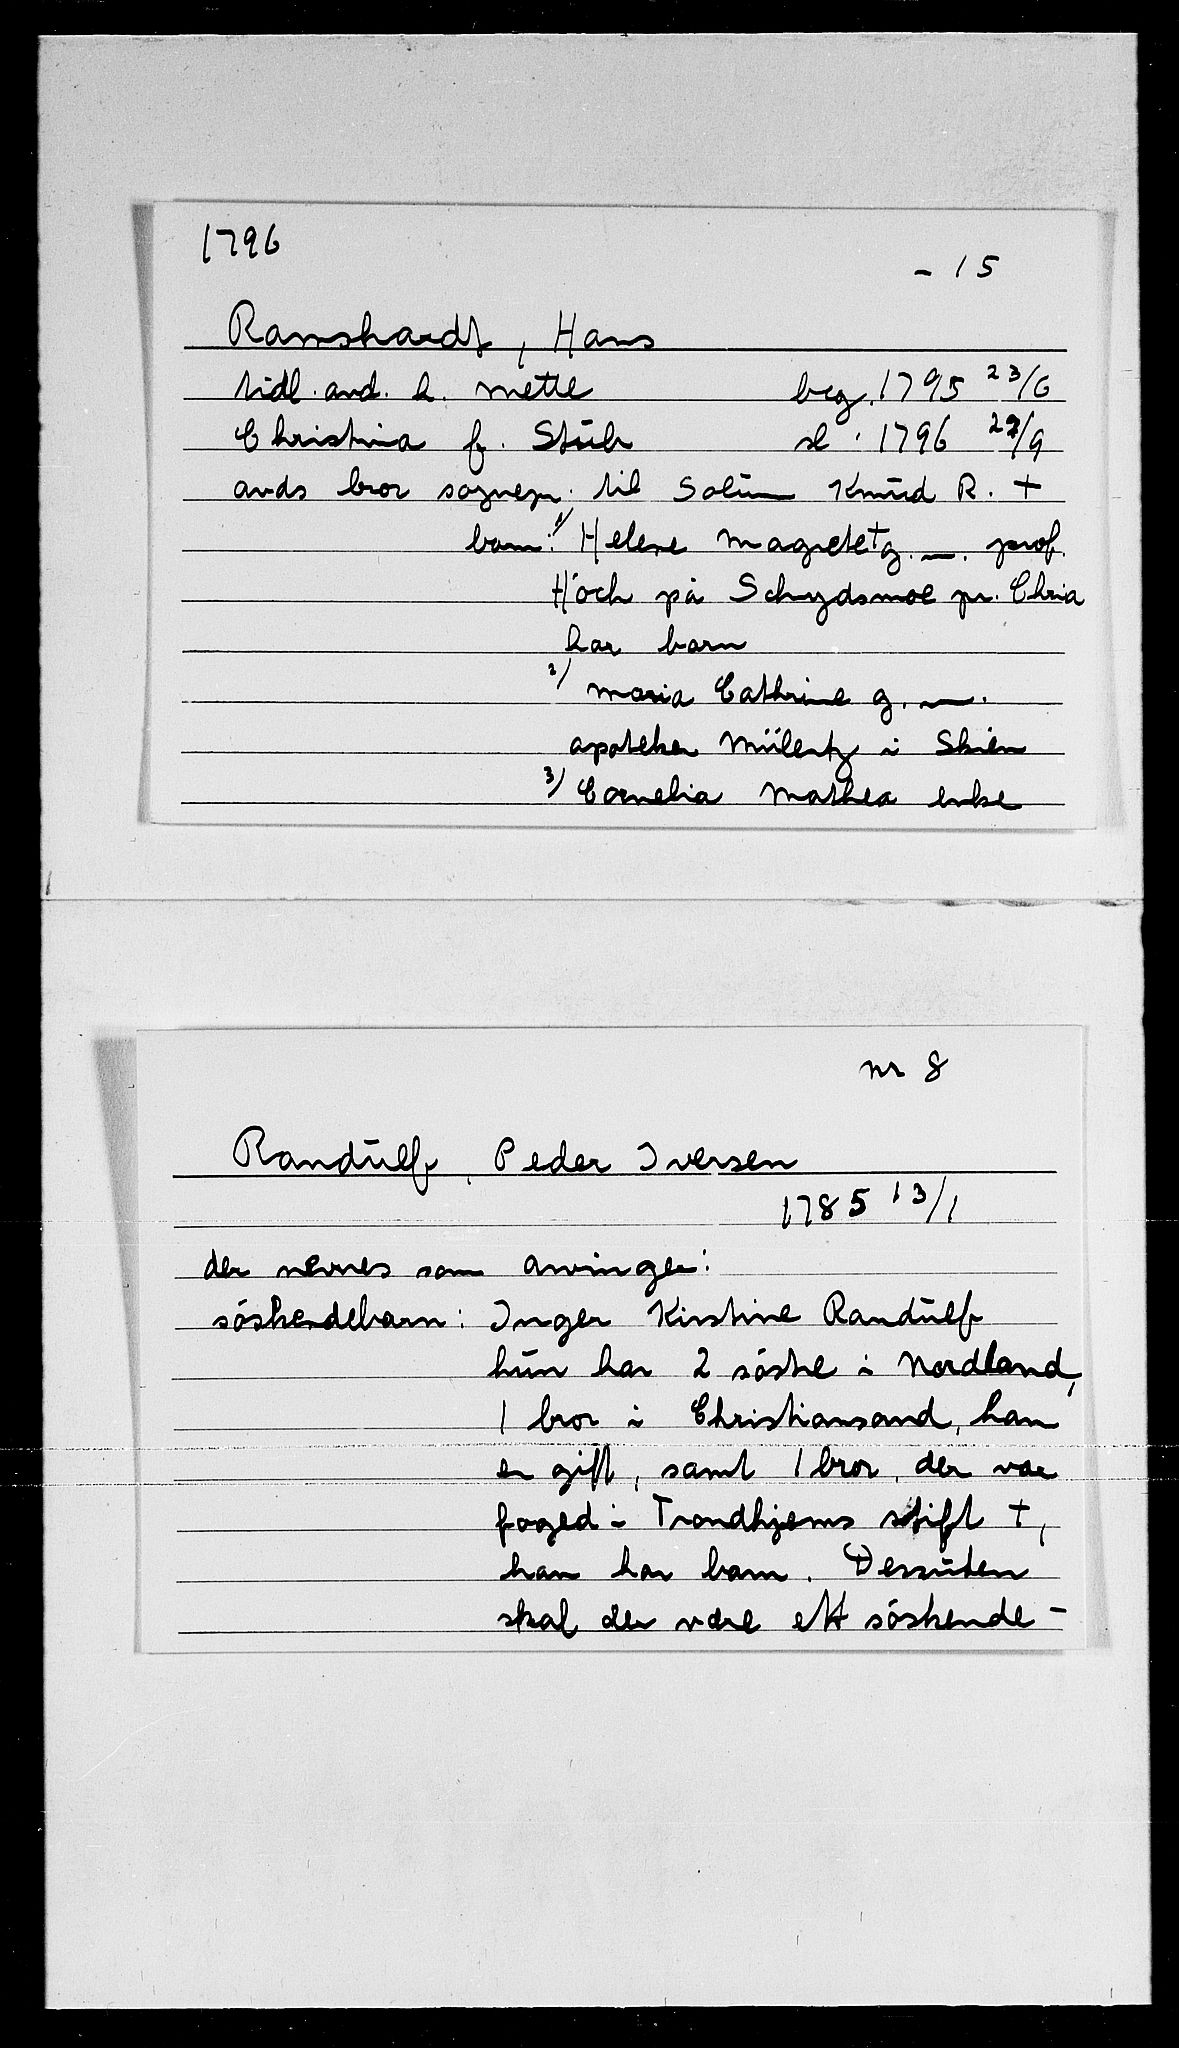 1796
- 15
Ramshardt, Hans
tidl. avd. h. Mette beg. 1795 23/6
Christina f. Stub sl. 1796 22/9
avds bror sognepr. til Solum Knud R. +
barn: 1/ Helene Magrete + g. m. prof.
Höch på Schydsmoe pr. Chria
har barn
2/ Maria Cathrine g. m.
apoteker Mülertz i Skien
3/ Cornelia Mathea enke
nr 8
Randulf, Peder Iversen
1785 13/1
der nevnes som arvinger:
söskendebarn: Inger Kirstine Randulf
hun har 2 söstre i Nordland,
1 bror i Christiansand, han
er gift, samt 1 bror, der var
foged i Trondhjems stift +,
han har barn. Dessuten
skal der være ett söskende-